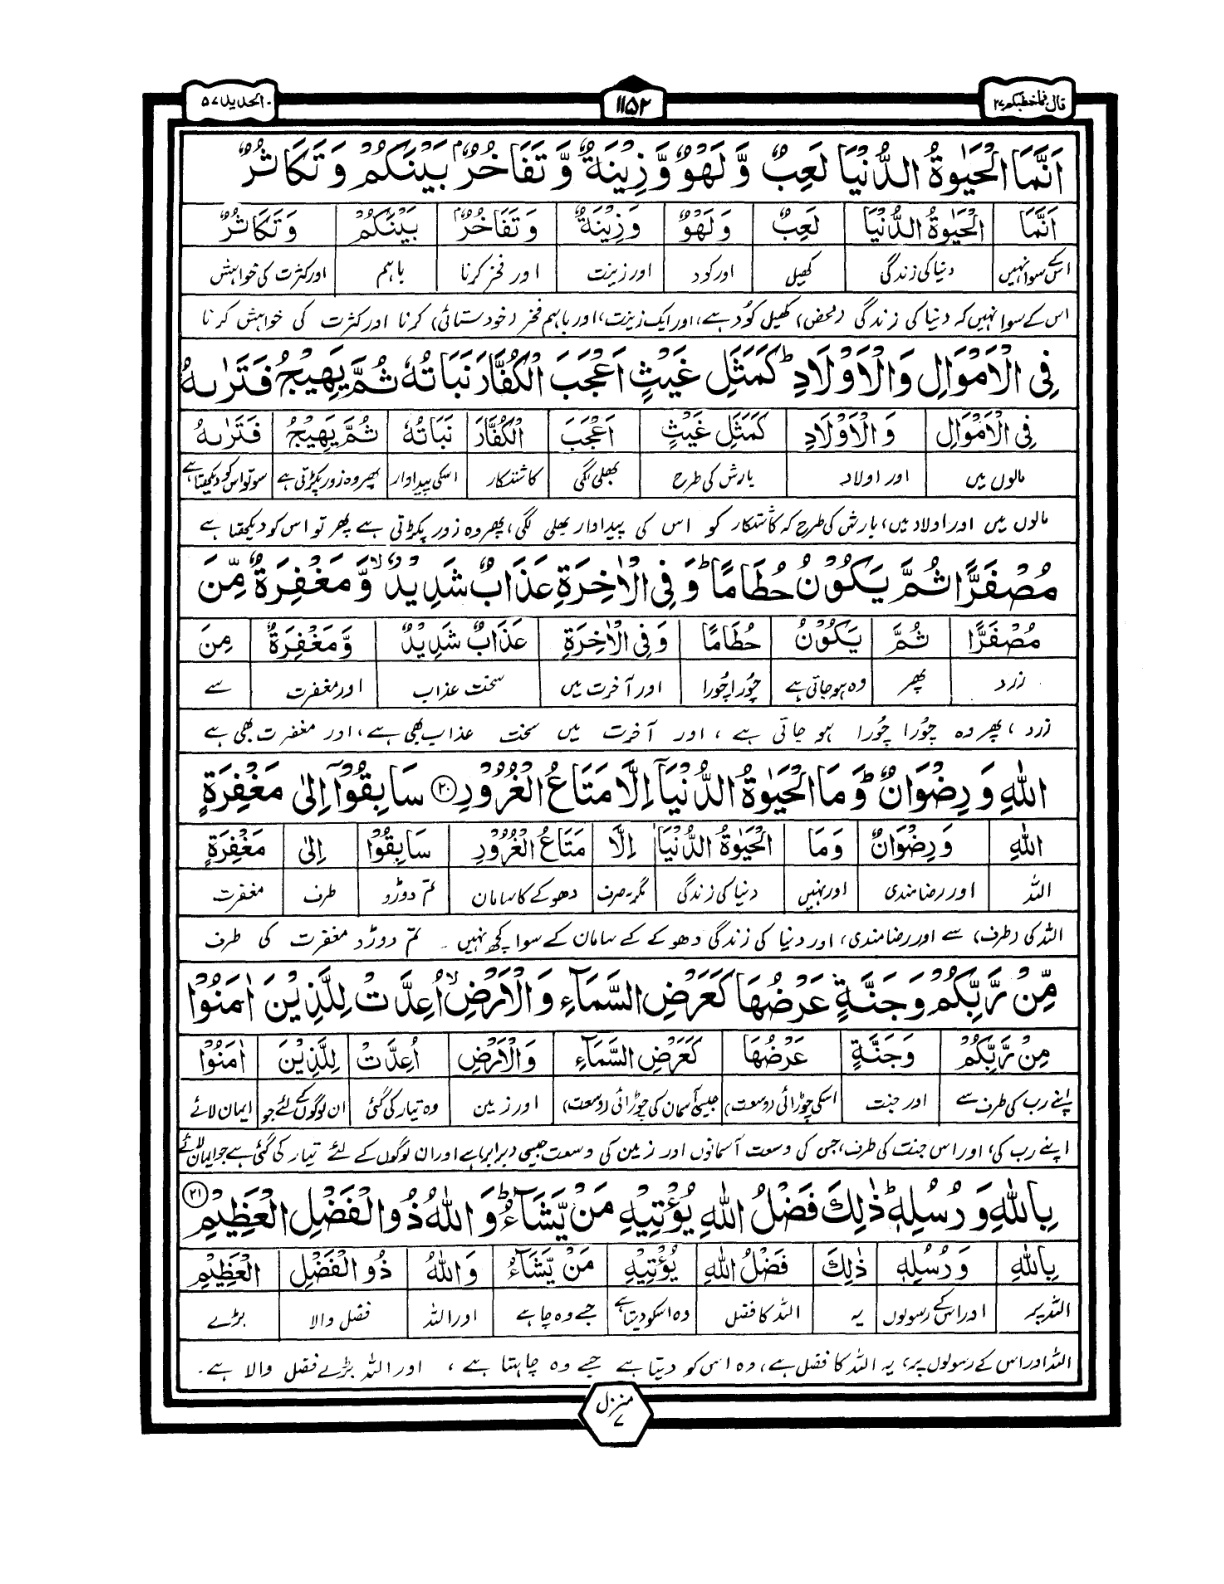 قال فما خطبکم ۲۷
۱۱۵۲
الحدید ۵۷
اَنَّمَا الْحَيٰوةُ الدُّنْيَا لَعِبٌ وَّ لَهْوٌ وَّ زِيْنَةٌ وَّ تَفَاخُرٌۢ بَيْنَكُمْ وَ تَكَاثُرٌ
اَنَّمَا الْحَيٰوةُ الدُّنْيَا لَعِبٌ وَ لَهْوٌ وَ زِيْنَةٌ وَ تَفَاخُرٌ بَيْنَكُمْ وَ تَكَاثُرٌ
اسکے سوا نہیں دنیا کی زندگی کھیل اور کود اور زینت اور فخر کرنا باہم اور کثرت کی خواہش
اس کے سوا نہیں کہ دنیا کی زندگی (محض) کھیل کود ہے، اور ایک زینت، اور باہم فخر (خودستائی) کرنا اور کثرت کی خواہش کرنا
فِى الْاَمْوَالِ وَ الْاَوْلَادِ ؕ كَمَثَلِ غَيْثٍ اَعْجَبَ الْكُفَّارَ نَبَاتُهٗ ثُمَّ يَهِيْجُ فَتَرٰىهُ
فِى الْاَمْوَالِ وَ الْاَوْلَادِ كَمَثَلِ غَيْثٍ اَعْجَبَ الْكُفَّارَ نَبَاتُهٗ ثُمَّ يَهِيْجُ فَتَرٰىهُ
مالوں میں اور اولاد بارش کی طرح بھلی لگی کاشتکار اسکی پیداوار پھر وہ زور پکڑتی ہے سو تو اس کو دیکھتا ہے
مالوں میں اور اولاد میں، بارش کی طرح کہ کاشتکار کو اس کی پیداوار بھلی لگی، پھر وہ زور پکڑتی ہے پھر تو اس کو دیکھتا ہے
مُصْفَرًّا ثُمَّ يَكُوْنُ حُطَامًا ؕ وَ فِى الْاٰخِرَةِ عَذَابٌ شَدِيْدٌ ۙ وَّ مَغْفِرَةٌ مِّنَ
مُصْفَرًّا ثُمَّ يَكُوْنُ حُطَامًا وَ فِى الْاٰخِرَةِ عَذَابٌ شَدِيْدٌ وَّ مَغْفِرَةٌ مِنَ
زرد پھر وہ ہو جاتی ہے چُورا چُورا اور آخرت میں سخت عذاب اور مغفرت سے
زرد، پھر وہ چُورا چُورا ہو جاتی ہے، اور آخرت میں سخت عذاب بھی ہے، اور مغفرت بھی ہے
اللّٰهِ وَ رِضْوَانٌ ؕ وَ مَا الْحَيٰوةُ الدُّنْيَاۤ اِلَّا مَتَاعُ الْغُرُوْرِ ۲۰ سَابِقُوْۤا اِلٰى مَغْفِرَةٍ
اللّٰهِ وَ رِضْوَانٌ وَ مَا الْحَيٰوةُ الدُّنْيَاۤ اِلَّا مَتَاعُ الْغُرُوْرِ سَابِقُوْۤا اِلٰى مَغْفِرَةٍ
اللہ اور رضا مندی اور نہیں دنیا کی زندگی مگر۔صرف دھوکے کا سامان تم دوڑو طرف مغفرت
اللہ کی (طرف) سے اور رضا مندی، اور دنیا کی زندگی دھوکے کے سامان کے سوا کچھ نہیں ۔ تم دوڑو مغفرت کی طرف
مِّنْ رَّبِّكُمْ وَ جَنَّةٍ عَرْضُهَا كَعَرْضِ السَّمَآءِ وَ الْاَرْضِ ۙ اُعِدَّتْ لِلَّذِيْنَ اٰمَنُوْا
مِنْ رَّبِّكُمْ وَ جَنَّةٍ عَرْضُهَا كَعَرْضِ السَّمَآءِ وَ الْاَرْضِ اُعِدَّتْ لِلَّذِيْنَ اٰمَنُوْا
اپنے رب کی طرف سے اور جنت اسکی چوڑائی (وسعت) جیسی آسمان کی چوڑائی (وسعت) اور زمین وہ تیار کی گئی ان لوگوں کے لئے جو ایمان لائے
اپنے رب کی، اور اس جنت کی طرف، جس کی وسعت آسمانوں اور زمین کی وسعت جیسی (برابر) ہے اور ان لوگوں کے لئے تیار کی گئی ہے جو ایمان لائے
بِاللّٰهِ وَ رُسُلِهٖ ؕ ذٰلِكَ فَضْلُ اللّٰهِ يُؤْتِيْهِ مَنْ يَّشَآءُ ؕ وَ اللّٰهُ ذُو الْفَضْلِ الْعَظِيْمِ ۲۱
بِاللّٰهِ وَ رُسُلِهٖ ذٰلِكَ فَضْلُ اللّٰهِ يُؤْتِيْهِ مَنْ يَّشَآءُ وَ اللّٰهُ ذُو الْفَضْلِ الْعَظِيْمِ
اللہ پر اور اس کے رسولوں یہ اللہ کا فضل وہ اسکو دیتا ہے جسے وہ چاہے اور اللہ فضل والا بڑے
اللہ اور اس کے رسولوں پر، یہ اللہ کا فضل ہے، وہ اس کو دیتا ہے جسے وہ چاہتا ہے، اور اللہ بڑے فضل والا ہے۔
منزل ۷